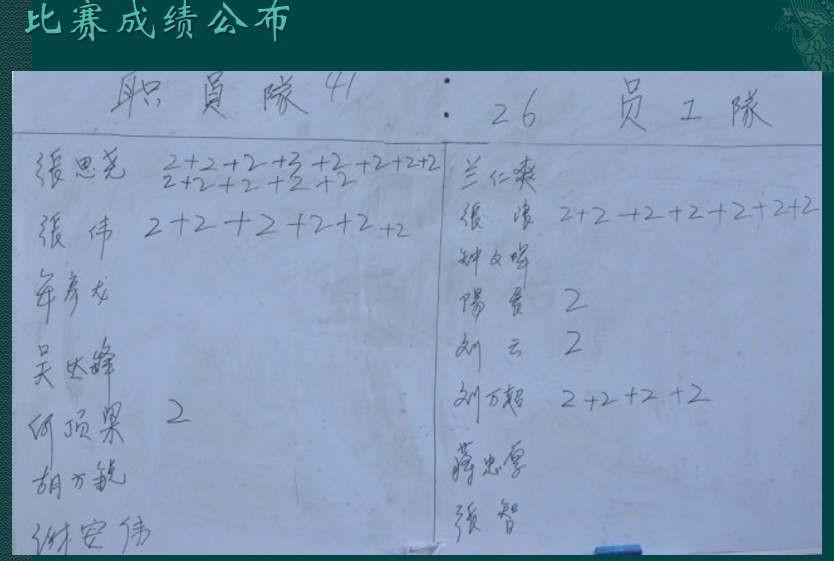 比赛成绩公布
职員隊 41 : 26 员工隊
張思尧 2+2+2+3+2+2+2+2
2+2+2+2+2
張伟 2+2+2+2+2+2
年彦龙
吴
何顶梁 2
胡万锐
安伟
兰仁爽
張 2+2+2+2+2+2+2
钟文晖
陽貴 2
刘云 2
刘万超 2+2+2+2
蒋忠厚
張智